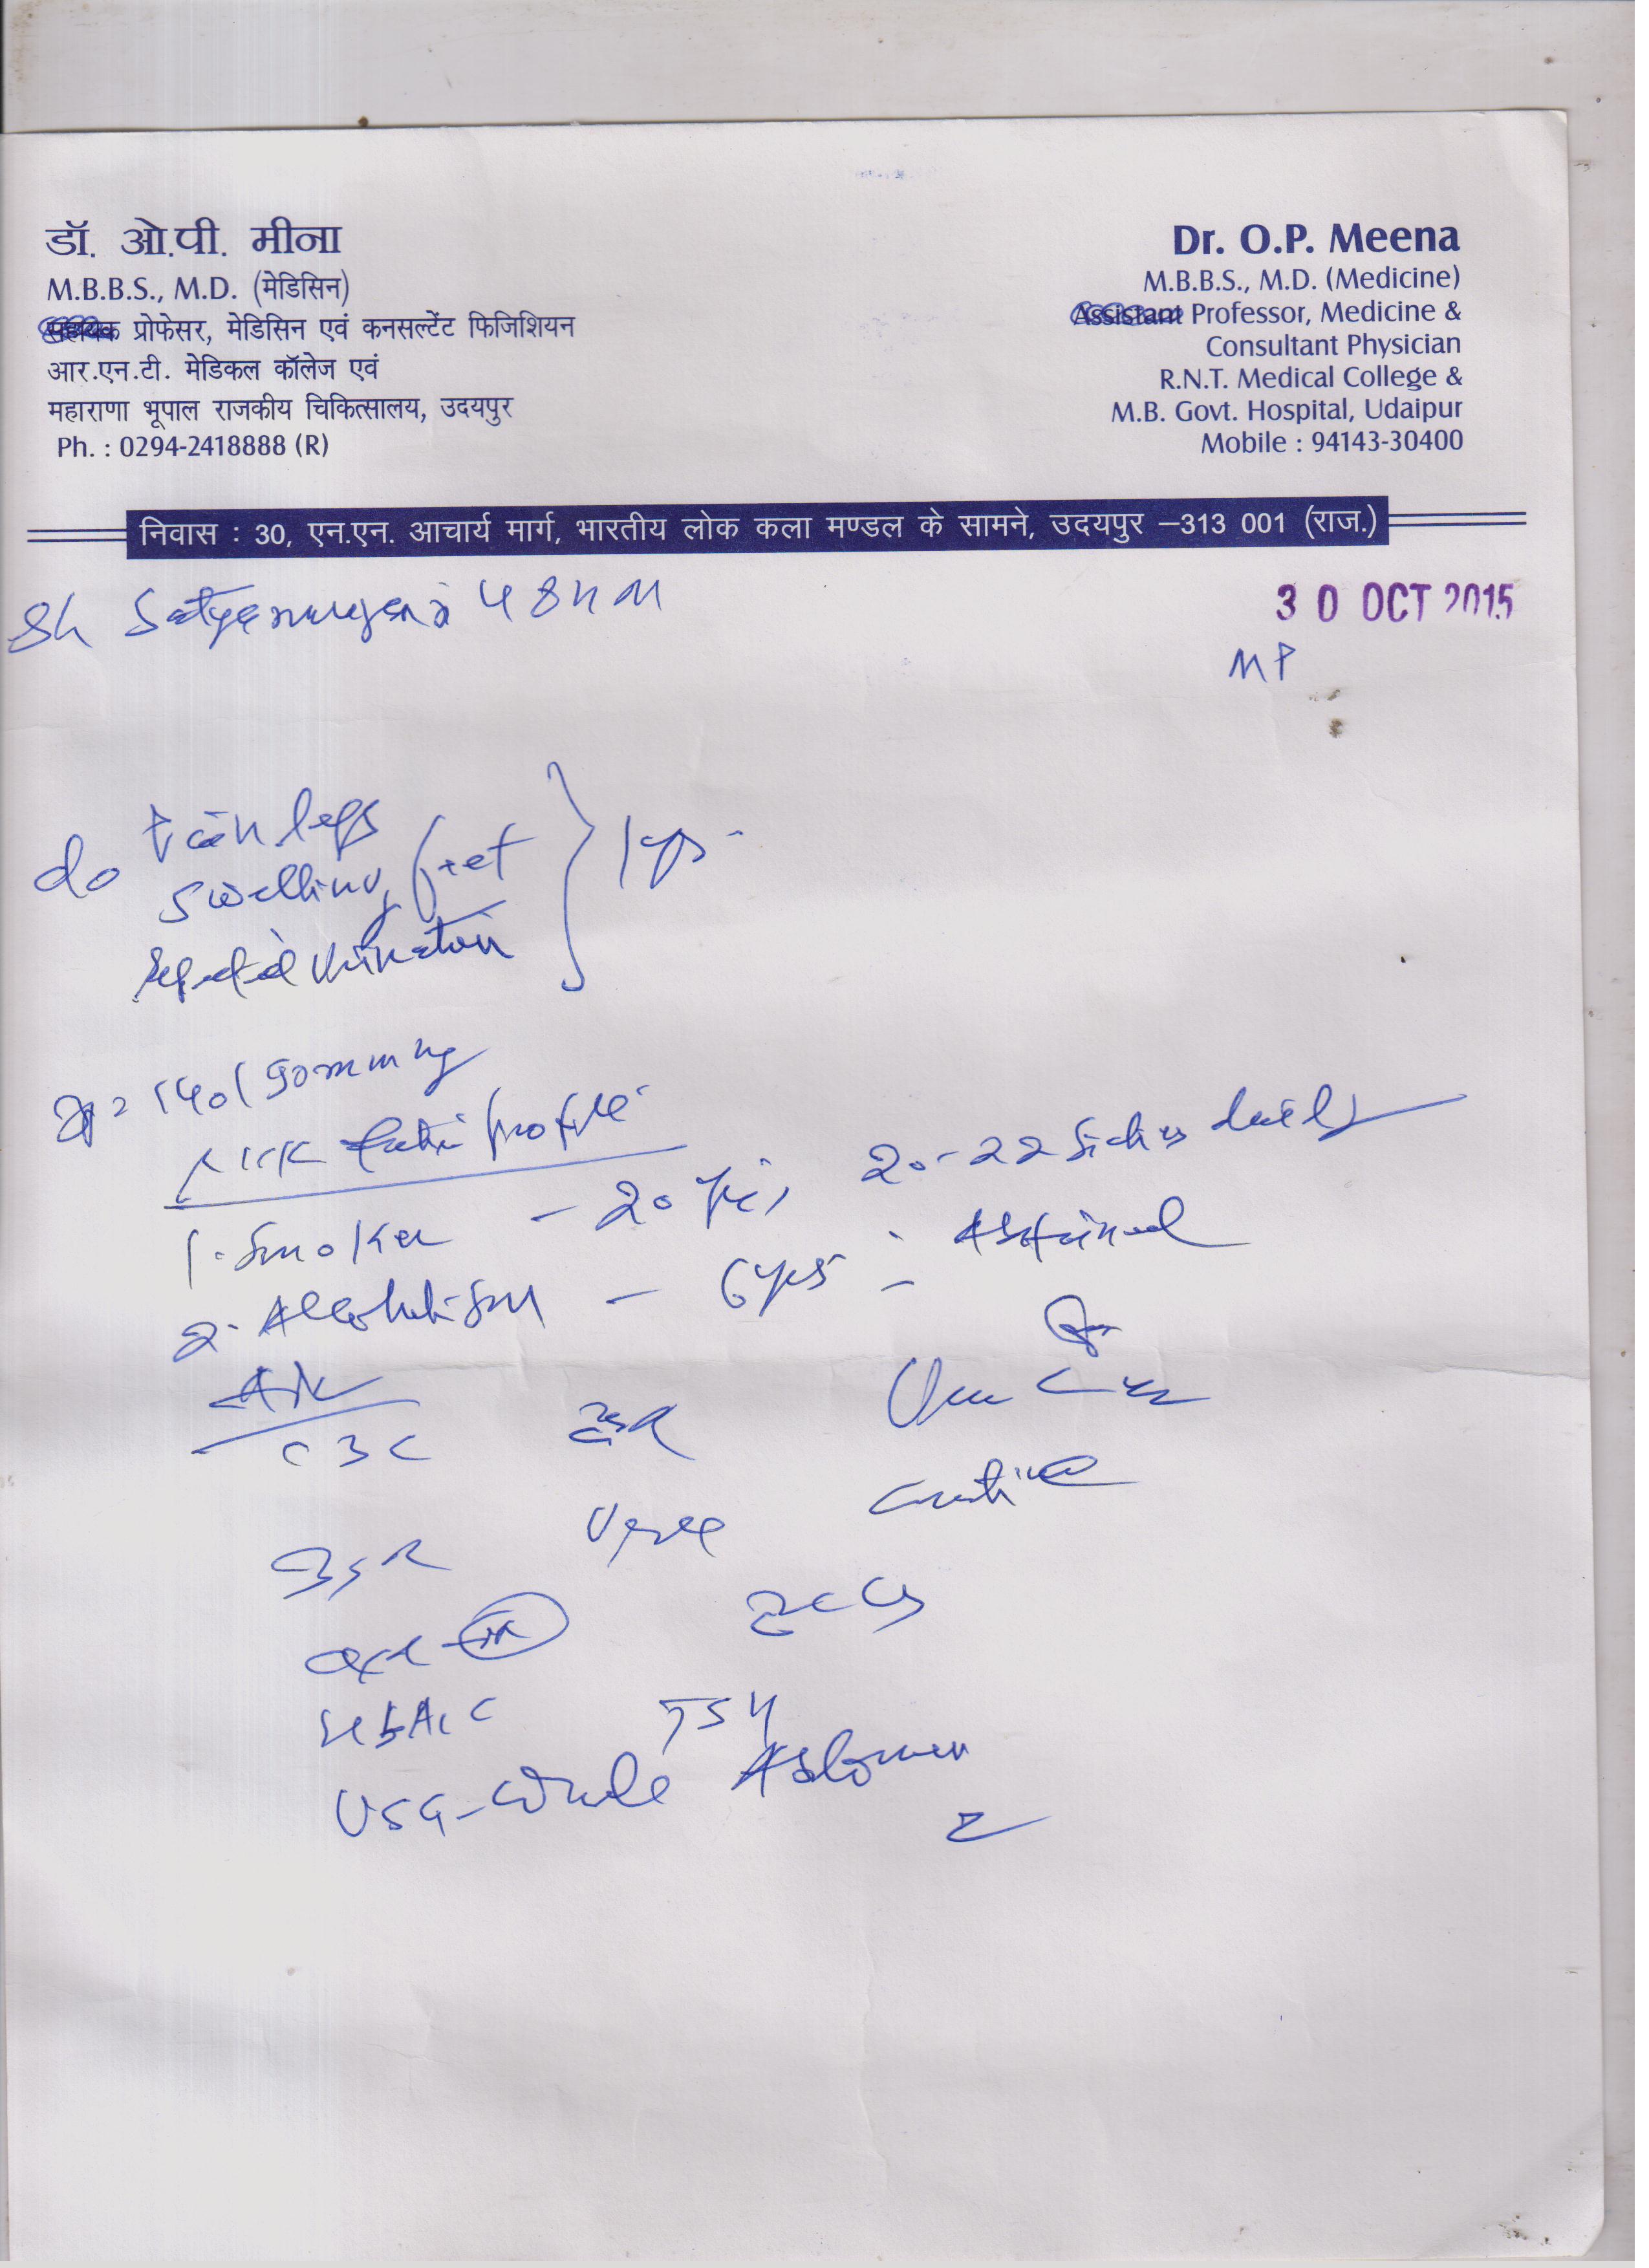 डॉ. ओ.पी. मीना
M.B.B.S., M.D. (मेडिसिन)
सहायक प्रोफेसर, मेडिसिन एवं कनसल्टेंट फिजिशियन
आर.एन.टी. मेडिकल कॉलेज एवं
महाराणा भूपाल राजकीय चिकित्सालय, उदयपुर
Ph. : 0294-2418888 (R)
Dr. O.P. Meena
M.B.B.S., M.D. (Medicine)
Assistant Professor, Medicine &
Consultant Physician
R.N.T. Medical College &
M.B. Govt. Hospital, Udaipur
Mobile : 94143-30400
निवास : 30, एन.एन. आचार्य मार्ग, भारतीय लोक कला मण्डल के सामने, उदयपुर –313 001 (राज.)
30 OCT 2015
Sh 48 M
MP
Pain legs
swelling feet
Repeated Urination
140/90 mm Hg
Risk factor profile
1. Smoker - 20 yrs, 20-22 daily
2. Alcoholism - 6 yrs - Abstained
CBC ESR
BSR Urea Creatinine
ECG
HbA1c TSH
USG - Whole Abdomen